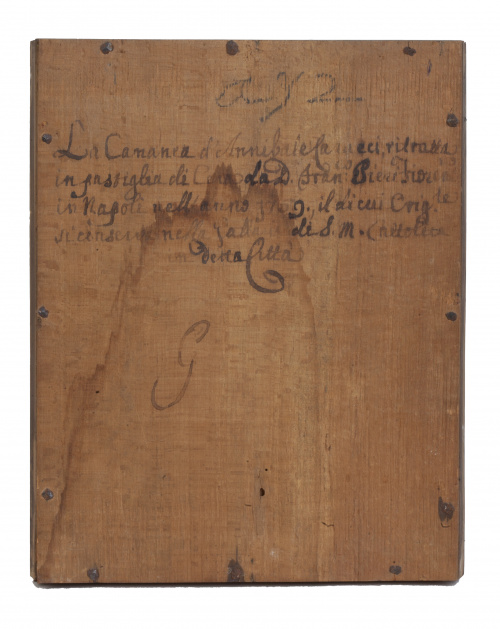 La Cananea d'Annibale Caracci, ritratta
in pastiglia di da D. Fran.co Pieri Fior.no
in Napoli nell'anno il di cui Orig.le
si conserva nella di S. M. Cattolica
in detta Città
G